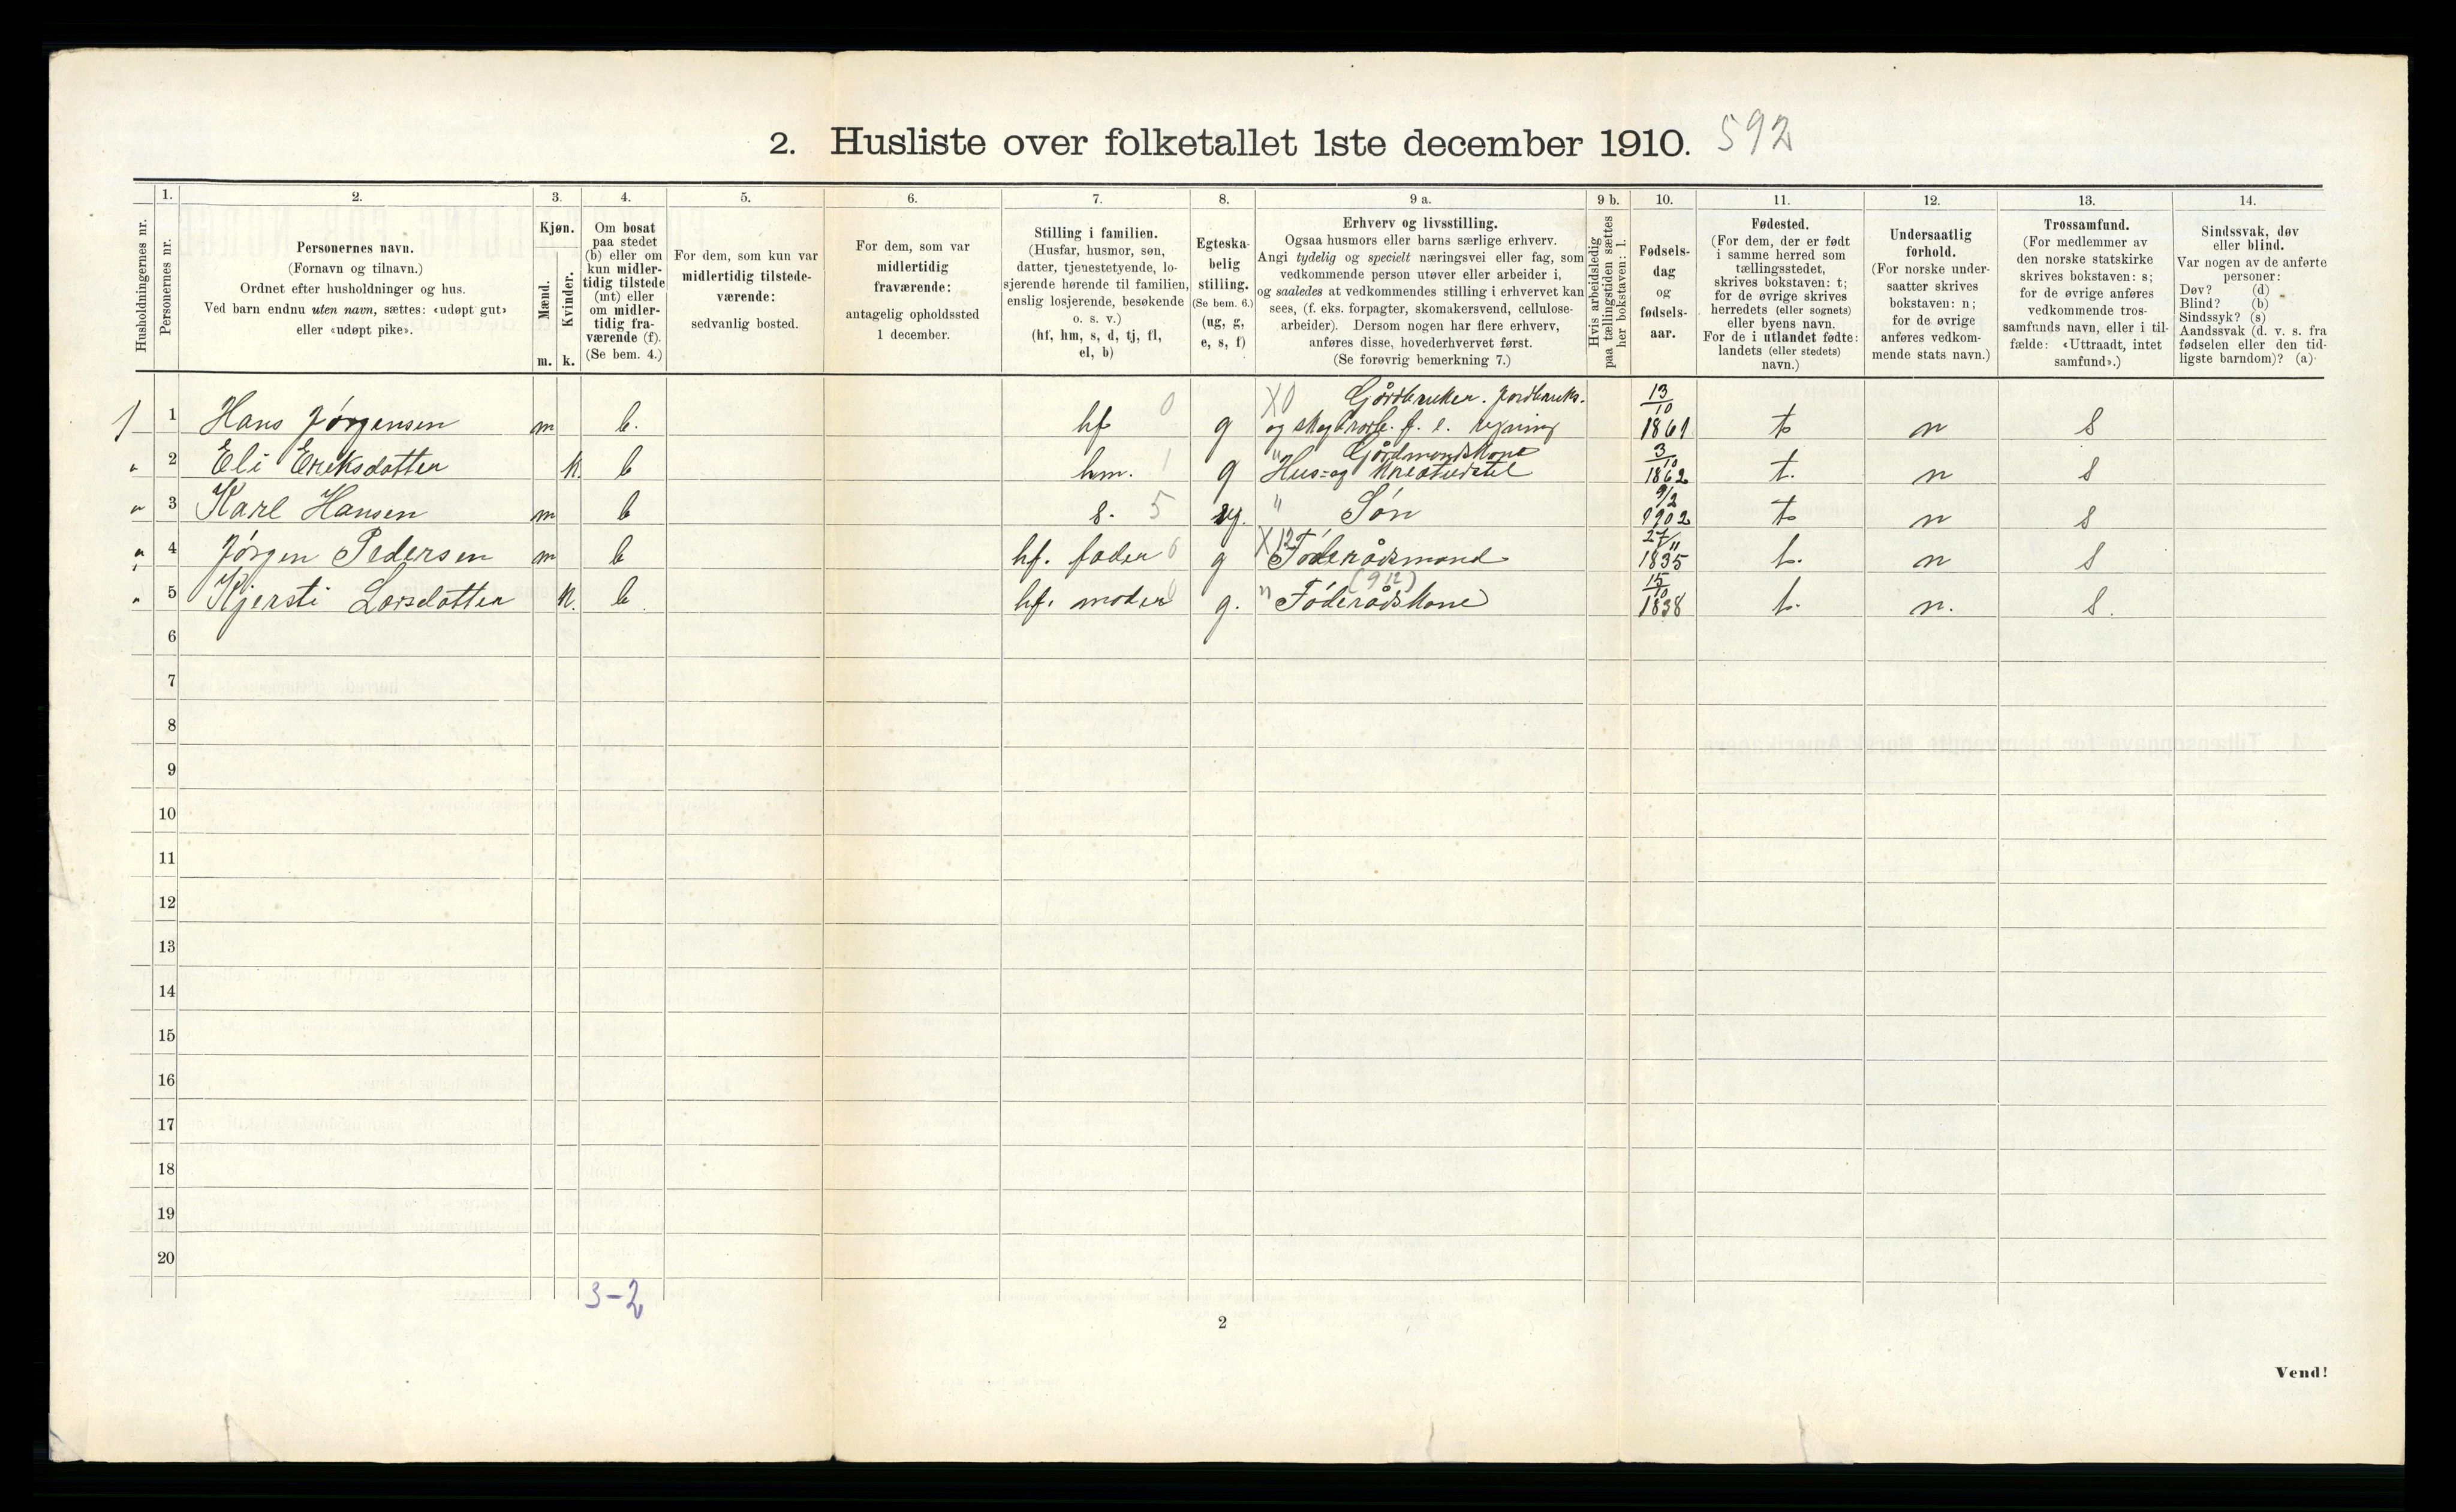 2. Husliste over folketallet 1ste december 1910. 592
1. 2. 3. 4. 5. 6. 7. 8. 9 a. 9 b. 10. 11. 12. 13. 14.
Husholdningernes nr.
Personernes nr.
Personernes navn.
(Fornavn og tilnavn.)
Ordnet efter husholdninger og hus.
Ved barn endnu uten navn, sættes: «udøpt gut»
eller «udøpt pike».
Kjøn.
Mænd.
Kvinder.
m. k.
Om bosat
paa stedet
(b) eller om
kun midler-
tidig tilstede
(mt) eller
om midler-
tidig fra-
værende (f).
(Se bem. 4.)
For dem, som kun var
midlertidig tilstede-
værende:
sedvanlig bosted.
For dem, som var
midlertidig
fraværende:
antagelig opholdssted
1 december.
Stilling i familien.
(Husfar, husmor, søn,
datter, tjenestetyende, lo-
sjerende hørende til familien,
enslig losjerende, besøkende
o. s. v.)
(hf, hm, s, d, tj, fl,
el, b)
Egteska-
belig
stilling.
(Se bem. 6.)
(ug, g,
e, s, f)
Erhverv og livsstilling.
Ogsaa husmors eller barns særlige erhverv.
Angi tydelig og specielt næringsvei eller fag, som
vedkommende person utøver eller arbeider i,
og saaledes at vedkommendes stilling i erhvervet kan
sees, (f. eks. forpagter, skomakersvend, cellulose-
arbeider). Dersom nogen har flere erhverv,
anføres disse, hovederhvervet først.
(Se forøvrig bemerkning 7.)
Hvis arbeidsledig
paa tællingstiden sættes
her bokstaven: l.
Fødsels-
dag
og
fødsels-
aar.
Fødested.
(For dem, der er født
i samme herred som
tællingsstedet,
skrives bokstaven: t;
for de øvrige skrives
herredets (eller sognets)
eller byens navn.
For de i utlandet fødte:
landets (eller stedets)
navn.)
Undersaatlig
forhold.
(For norske under-
saatter skrives
bokstaven: n;
for de øvrige
anføres vedkom-
mende stats navn.)
Trossamfund.
(For medlemmer av
den norske statskirke
skrives bokstaven: s;
for de øvrige anføres
vedkommende tros-
samfunds navn, eller i til-
fælde: «Uttraadt, intet
samfund».)
Sindssvak, døv
eller blind.
Var nogen av de anførte
personer:
Døv? (d)
Blind? (b)
Sindssyk? (s)
Aandssvak (d. v. s. fra
fødselen eller den tid-
ligste barndom)? (a)
X0 Gårdbruker. Jordbruks- 13/10
1 1 Hans Jørgensen m b. hf 0 g og skogbrug f. e. regning 1861 t n s
" Gårdmandskone 3/10
" 2 Eli Eriksdatter k. b hm. 1 g Hus- og kreaturstel 1862 t. n s
" 3 Karl Hansen m b s. 5 ug. " Søn 9/2 1902 t n s
" 4 Jørgen Pedersen m b hf. fader 6 g X12 Føderådsmand 27/11 1835 t. n s
" 5 Kjersti Larsdatter k. b hf. moder 6 g. " Føderådskone (912) 15/10 1838 t. n. s.
6
7
8
9
10
11
12
13
14
15
16
17
18
19
20
3-2
2
Vend!